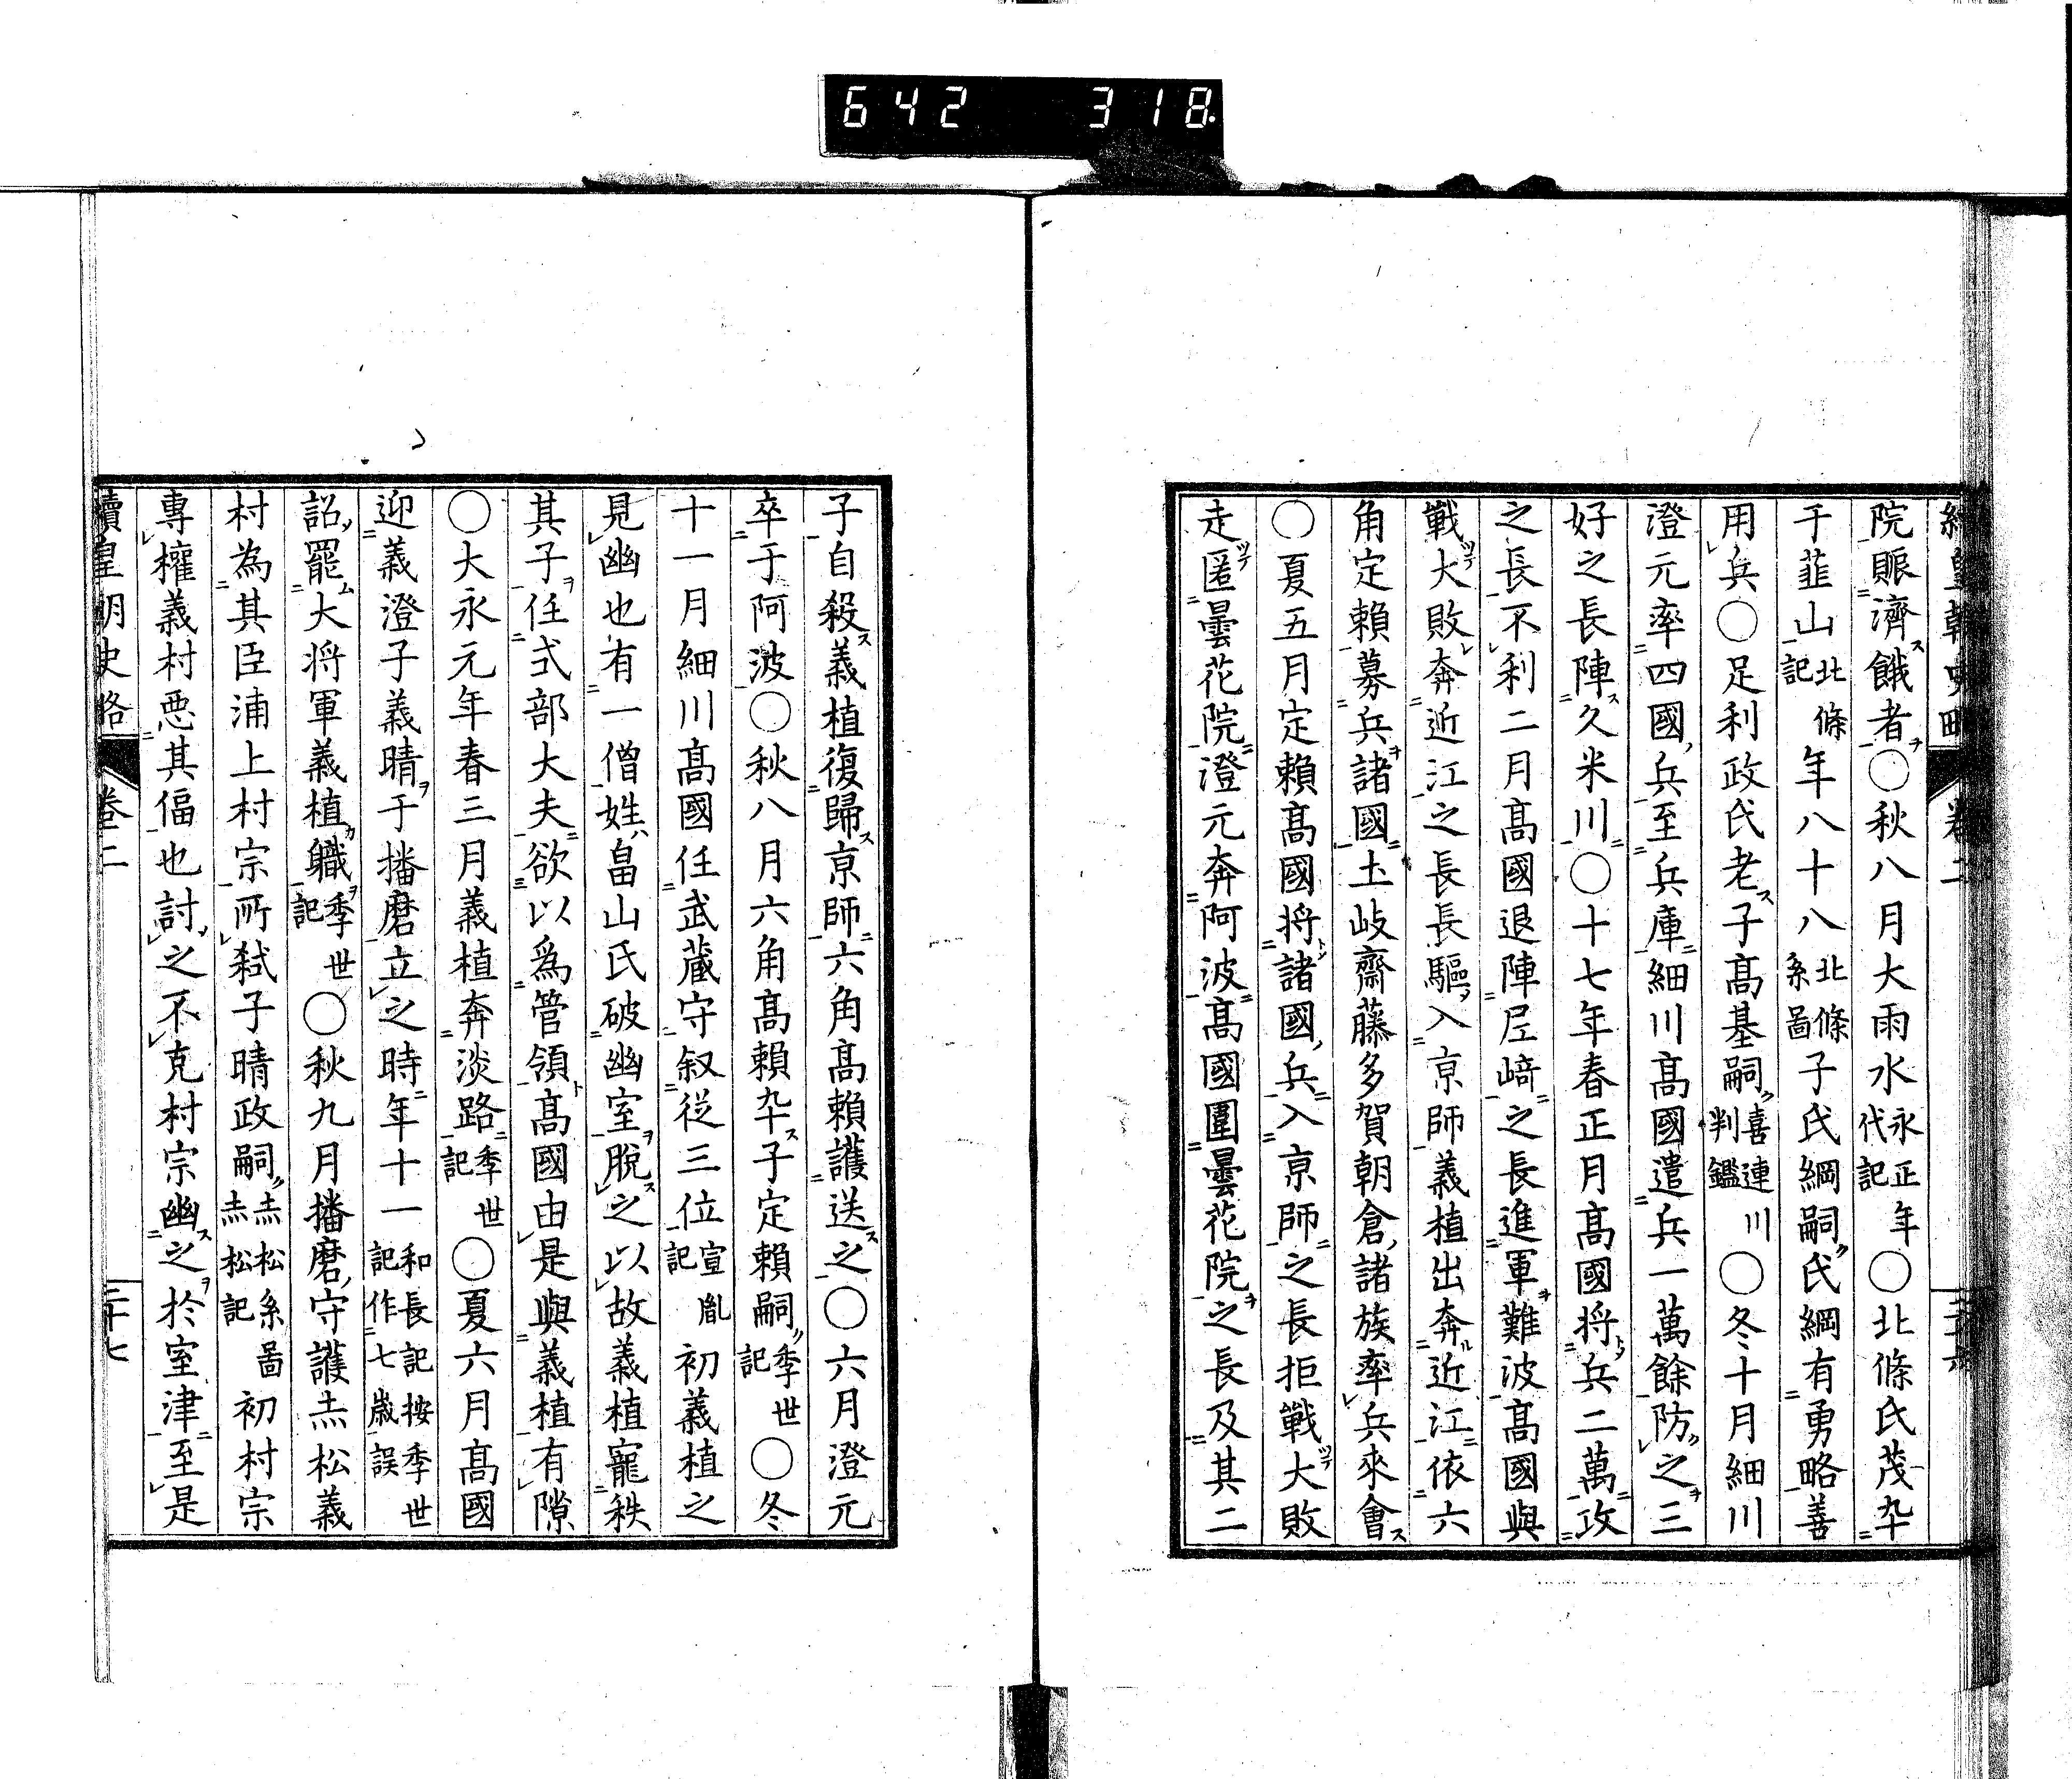 642 318
續皇朝史略 卷二
院賑濟餓者〇秋八月大雨水永正年代記〇北條氏茂卒
于韮山北條記年八十八北條系啚子氏綱嗣氏綱有勇略善
用兵〇足利政氏老子髙基嗣喜連川判鑑〇冬十月細川
澄元率四國兵至兵庫細川髙國遣兵一萬餘防之三
好之長陣久米川〇十七年春正月髙國将兵二萬攻
之長不利二月髙國退陣尼﨑之長進軍難波髙國與
戰大敗奔近江之長長驅入京師義植出奔近江依六
角定賴募兵諸國土岐齋藤多賀朝倉諸族率兵來會
〇夏五月定賴髙國将諸國兵入京師之長拒戰大敗
走匿曇花院澄元奔阿波髙國圍曇花院之長及其二
子自殺義植復歸京師六角髙賴護送之〇六月澄元
卒于阿波〇秋八月六角髙賴卒子定賴嗣季世記〇冬
十一月細川髙國任武藏守叙從三位宣胤記初義植之
見幽也有一僧姓畠山氏破幽室脫之以故義植寵秩
其子任式部大夫欲以爲管領髙國由是與義植有隙
〇大永元年春三月義植奔淡路季世記〇夏六月髙國
迎義澄子義晴于播磨立之時年十一和長記按季世記作七歳誤
詔罷大将軍義植職季世記〇秋九月播磨守護赤松義
村為其臣浦上村宗所弑子晴政嗣赤松系啚赤松記初村宗
專權義村惡其偪也討之不克村宗幽之於室津至是
續皇朝史略 卷二 三十七